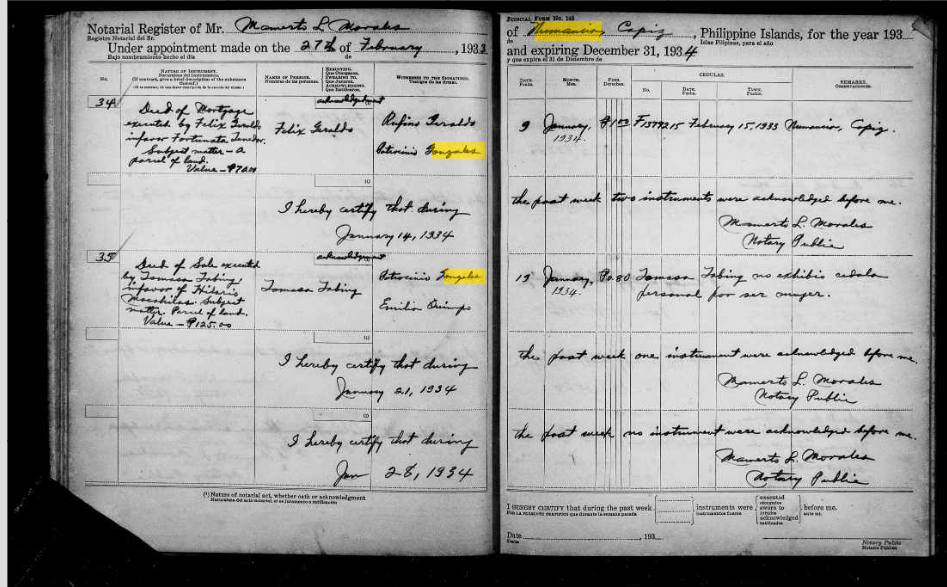 Notarial Register of Mr. Mamerto L. Morales
Registro Notarial del Sr.
Under appointment made on the 27th of February, 1933
Bajo nombramiento hecho el día de
No.
NATURE OF INSTRUMENT.
NAMES OF PERSONS.
WITNESSES TO THE SIGNATURES.
34
acknowledgment
Deed of Mortgage
executed by Felix Geraldo
infavor Fortunata
Subject matter — a
parcel of land.
Value — ₱70.00
Felix Geraldo
Rufino Geraldo
Patrocinio Gonzales
I hereby certify that during
January 14, 1934
35
acknowledgment
Deed of Sale executed
by Tomasa Tabing
infavor of Hilario
Subject
matter Parcel of land.
Value — ₱125.00
Tomasa Tabing
Patrocinio Gonzales
Emilio
I hereby certify that during
January 21, 1934
I hereby certify that during
Jan 28, 1934
(¹) Nature of notarial act, whether oath or acknowledgment
Naturaleza del acto notarial, si es juramento o ratificación
JUDICIAL FORM No. 143
of Numancia, Capiz, Philippine Islands, for the year 193
Islas Filipinas, para el año
and expiring December 31, 1934
y que expira el 31 de Diciembre de
DATE.
MONTH.
FEES.
CEDULAS.
No.
DATE.
TOWN.
REMARKS.
9 January, 1934. ₱1.00 F1599215 February 15, 1933 Numancia, Capiz.
the past week two instruments were acknowledged before me.
Mamerto L. Morales
Notary Public
19 January, 1934. ₱0.80 Tomasa Tabing no exhibio cedula
personal por ser mujer.
the past week one instrument were acknowledged before me.
Mamerto L. Morales
Notary Public
the past week no instrument were acknowledged before me.
Mamerto L. Morales
Notary Public
I HEREBY CERTIFY that during the past week instruments were executed sworn to acknowledged before me.
Date , 193
Notary Public
Notario Público